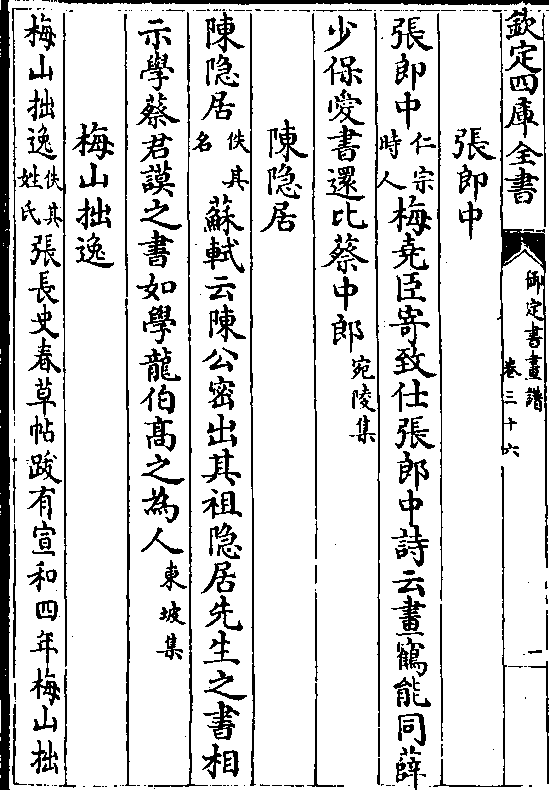 欽定四庫全書
御定書畫譜
卷三十六
一
張郎中
張郎中仁宗時人梅堯臣寄致仕張郎中詩云畫鶴能同薛
少保愛書還比蔡中郎宛陵集
陳隱居
陳隱居佚其名蘇軾云陳公密出其祖隱居先生之書相
示學蔡君謨之書如學龍伯髙之為人東坡集
梅山拙逸
梅山拙逸佚其姓氏張長史春草帖跋有宣和四年梅山拙